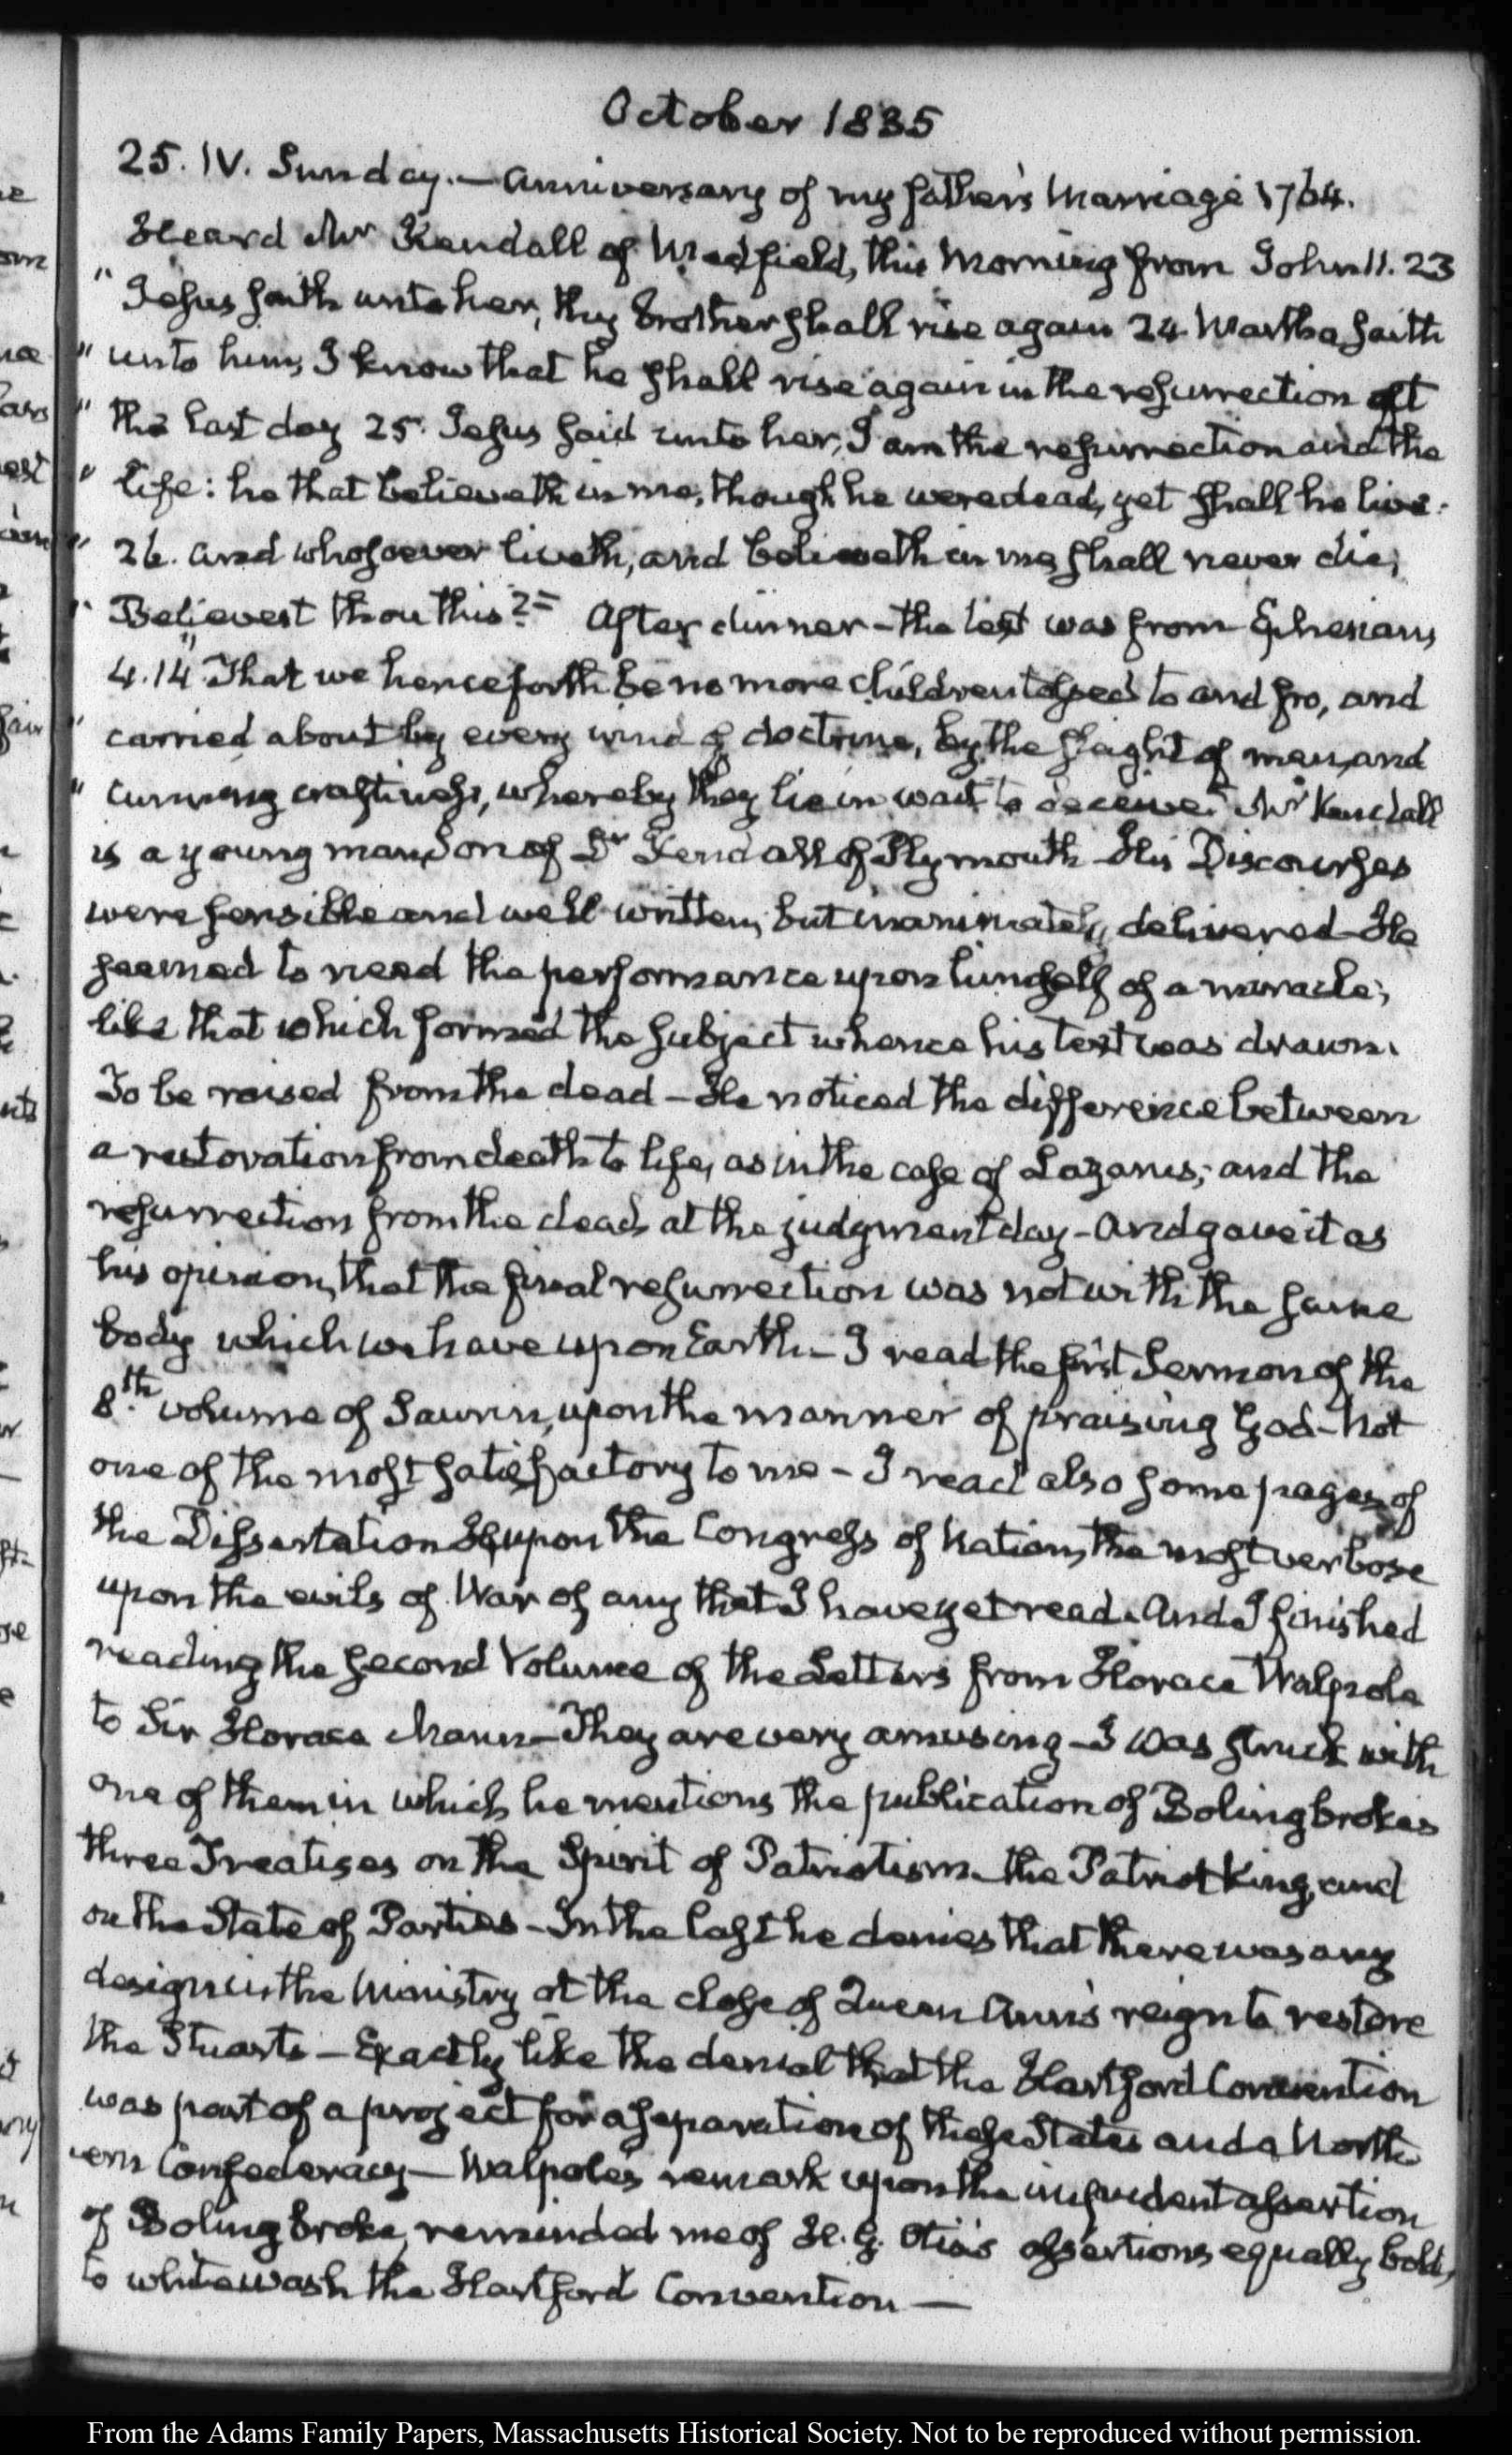 October 1835
25. IV. Sunday. — Anniversary of my father's Marriage 1764.
Heard Mr Kendall of Medfield, this Morning from John 11. 23
" Jesus saith unto her, thy brother shall rise again 24. Martha saith
" unto him, I know that he shall rise again in the resurrection at
" the last day 25. Jesus said unto her, I am the resurrection and the
" life: he that believeth in me, though he were dead, yet shall he live.
" 26. And whosoever liveth, and believeth in me shall never die,
" Believest thou this?= After dinner - the text was from Ephesians
4.14 "That we henceforth be no more children tossed to and fro, and
" carried about by every wind of doctrine, by the slaight of men, and
" cunning craftiness, whereby they lie in wait to deceive." Mr Kendall
is a young man, Son of Dr Kendall of Plymouth - His Discourses
were sensible and well written, but inanimately delivered - He
seemed to need the performance upon himself of a miracle,
like that which formed the subject whence his text was drawn.
To be raised from the dead - He noticed the difference between
a restoration from death to life, as in the case of Lazarus, and the
resurrection from the dead, at the judgment day - And gave it as
his opinion, that the final resurrection was not with the same
body which we have upon Earth - I read the first Sermon of the
8.th volume of Saurin, upon the manner of praising God - Not
one of the most satisfactory to me - I read also some pages of
the Dissertation upon the Congress of Nations, the most verbose
upon the evils of War of any that I have yet read. And I finished
reading the second Volume of the Letters from Horace Walpole
to Sir Horace Mann - They are very amusing - I was struck with
one of them in which he mentions the publication of Bolingbroke's
three Treatises on the Spirit of Patriotism - the Patriot King, and
on the State of Parties - In the last he denies that there was any
design in the Ministry at the close of Queen Ann's reign to restore
the Stuarts - Exactly like the denial that the Hartford Convention
was part of a project for a separation of these States and a North-
ern Confederacy - Walpole's remark upon the impudent assertion
of Bolingbroke, reminded me of H. G. Otis's assertions equally bold,
to whitewash the Hartford Convention —
From the Adams Family Papers, Massachusetts Historical Society. Not to be reproduced without permission.